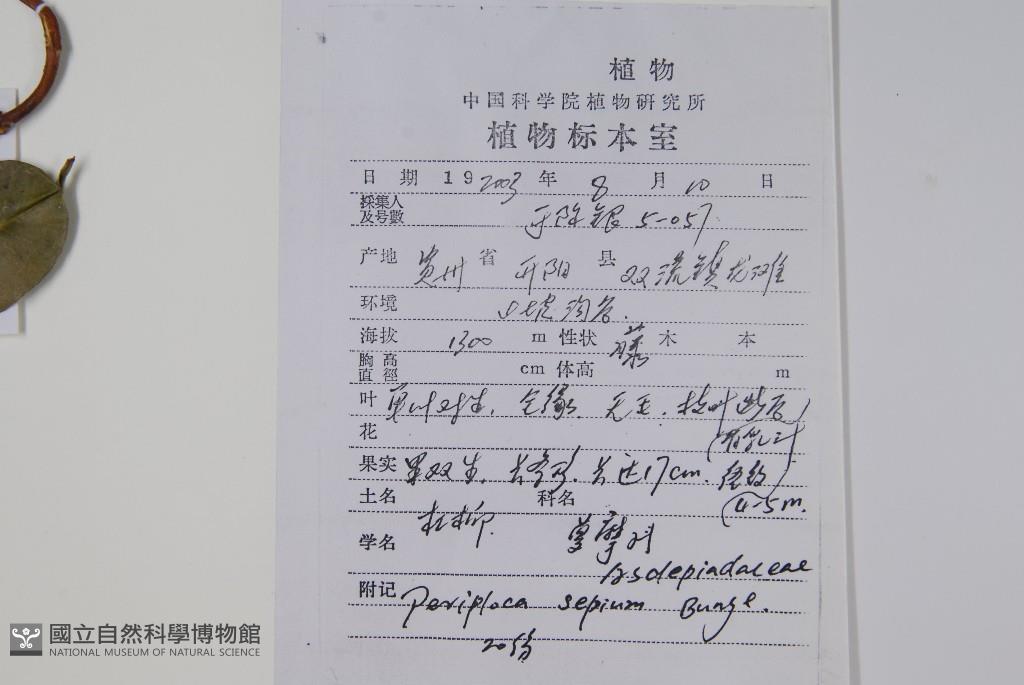 植物
中国科学院植物研究所
植物标本室
日 期 19 2003 年 8 月 10 日
採集人
及号數 5-057
产地 贵州 省 开阳 县 双流镇
环境 山坡沟谷.
海拔 1300 m 性状 藤 木 本
胸高
直徑 cm 体高 m
叶 单叶对生. 全缘. 无毛. 枝叶断后
花 有乳汁
果实 果双生. 长达17cm.
土名 科名 4-5m.
杠柳.
学名 萝藦科
Asclepiadaceae
附记 Periploca sepium Bunge.
20份
國立自然科學博物館
NATIONAL MUSEUM OF NATURAL SCIENCE